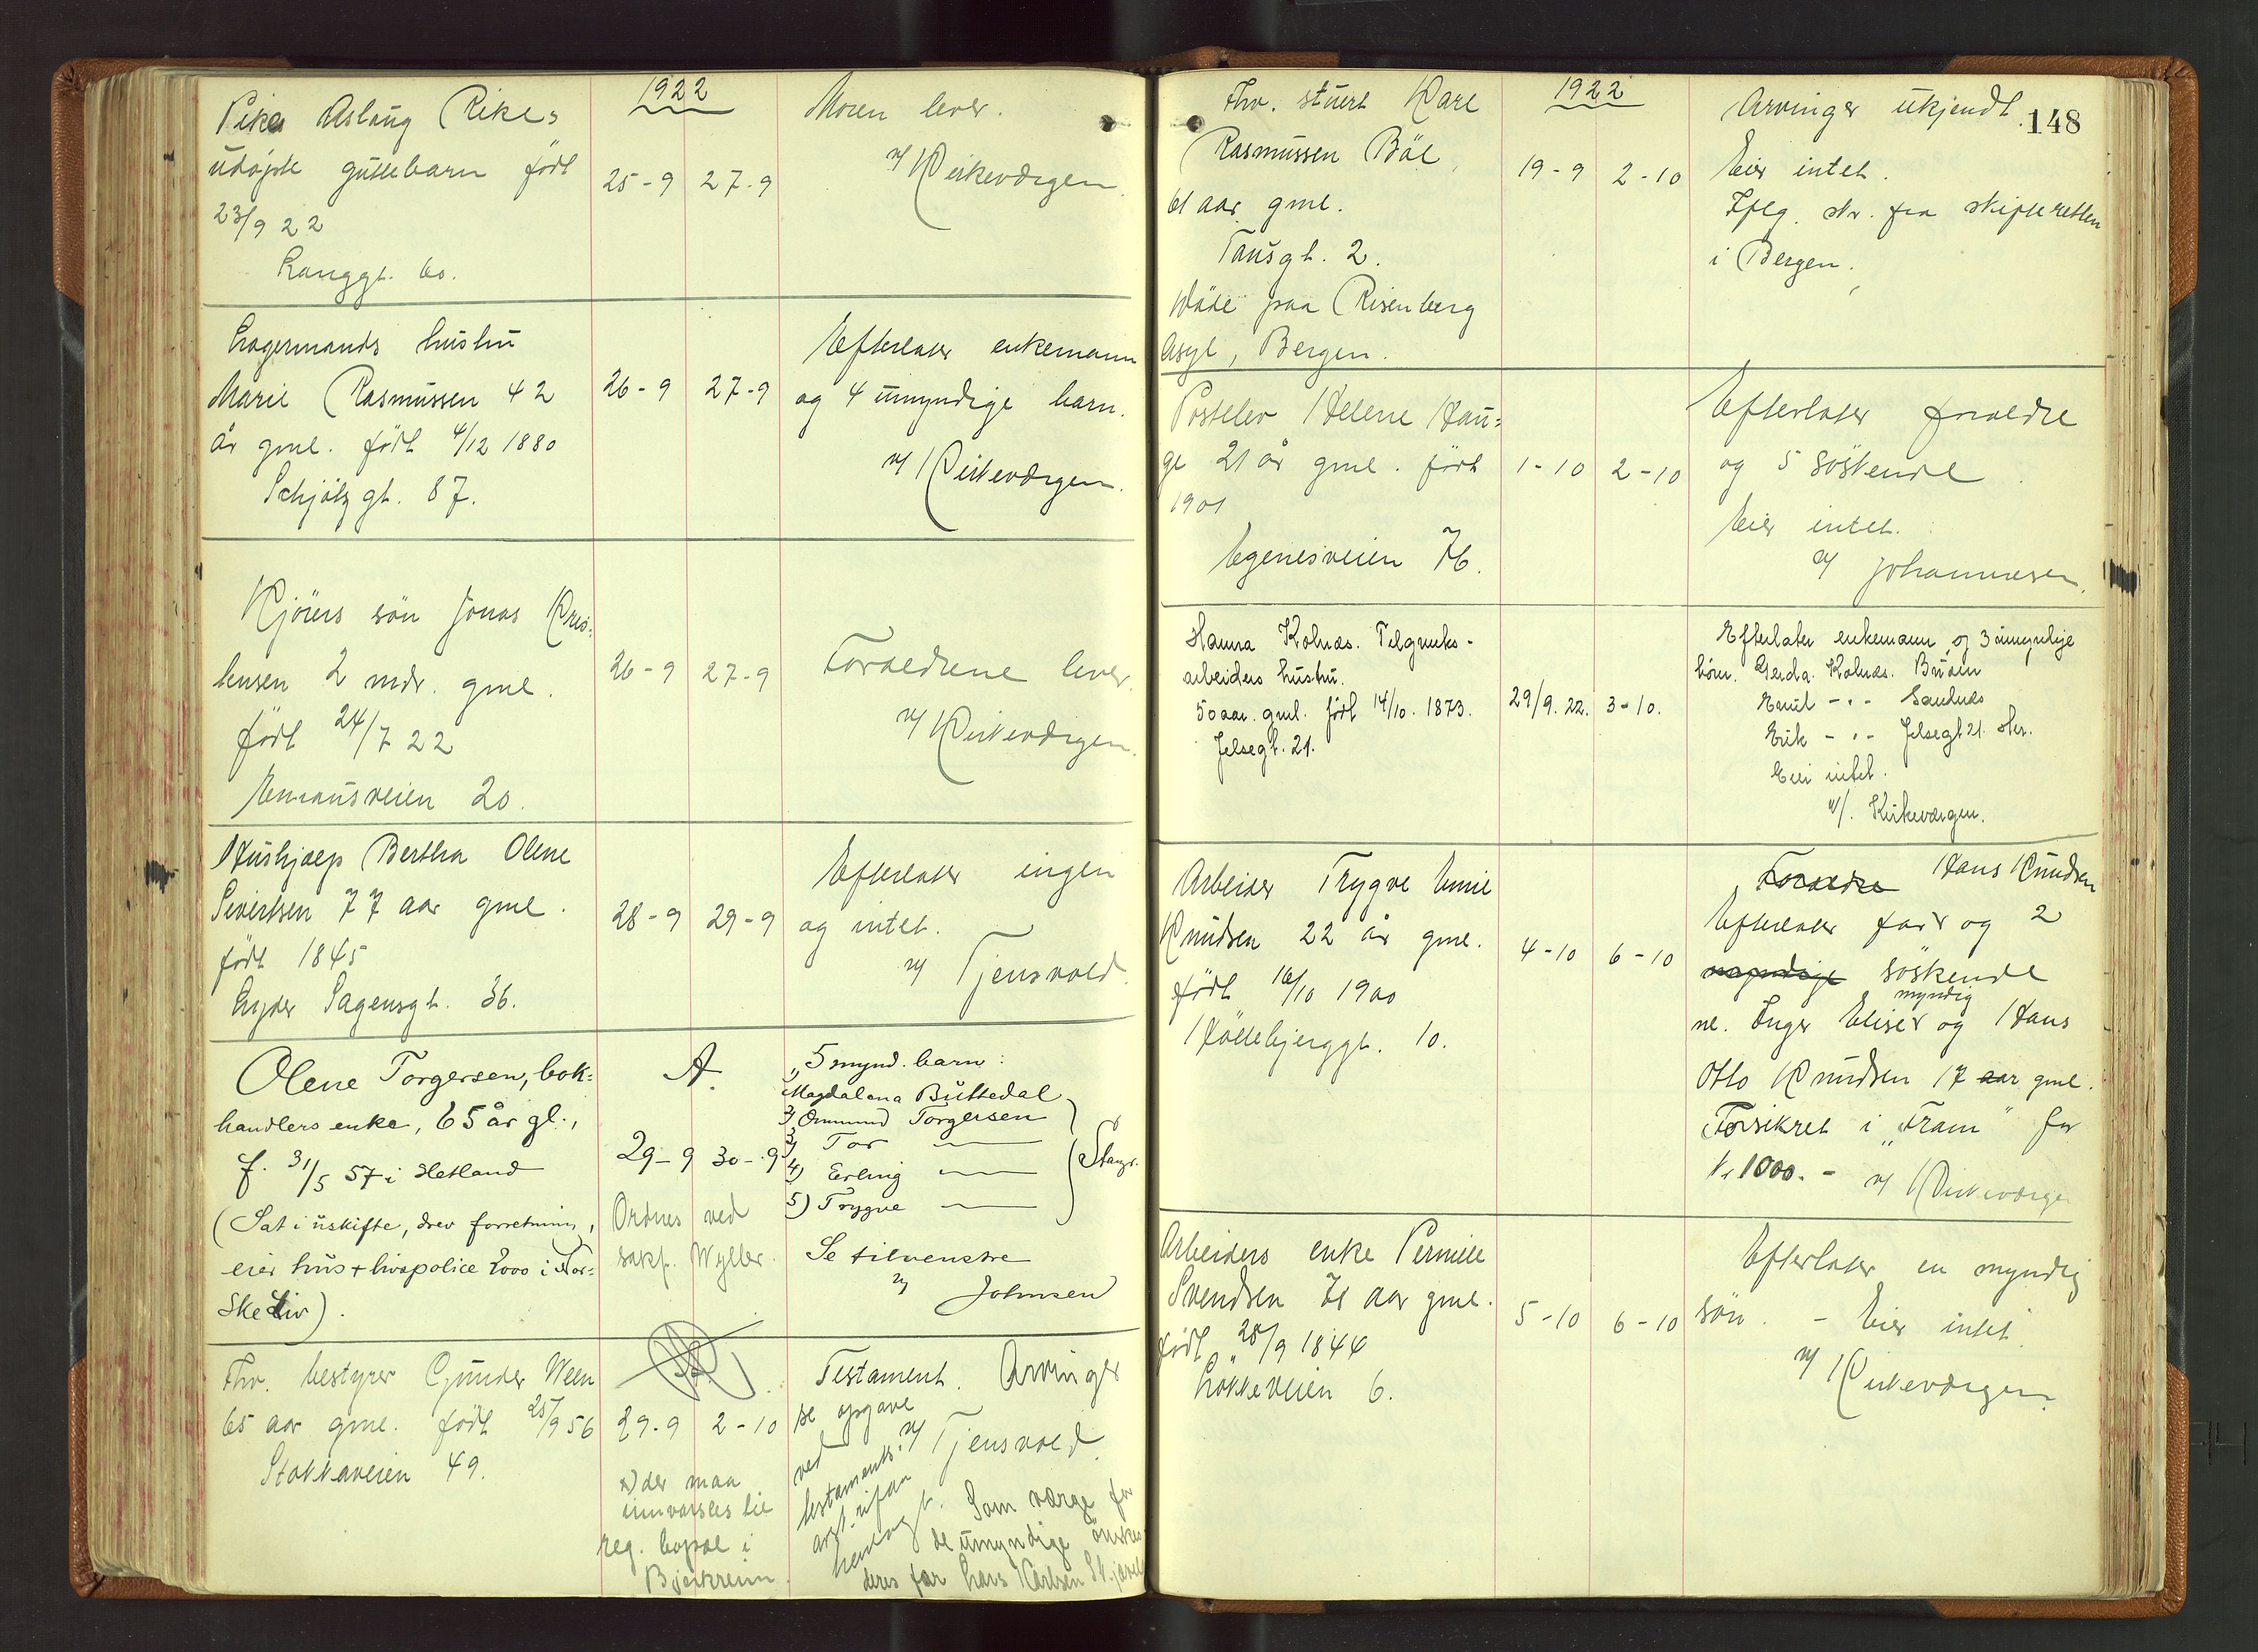 1922
Pike Aslaug Rikes
udöpte guttebarn født
23/9 22
Langgt. 60.
25-9 27-9
Moren lever.
v/ Kirkevergen.
Lagermands hustru
Marie Rasmussen 42
år gml. født 4/12 1880
Schjötz gt. 87.
26-9 27-9
Efterlater enkemann
og 4 umyndige barn.
v/ Kirkevergen.
Kjörers sön Jonas Kris-
tensen 2 mdr. gml.
født 24/7 22
Emausveien 20.
26-9 27-9
Forældrene lever.
v/ Kirkevergen.
Hushjælp Bertha Olene
Sivertsen 77 aar gml.
født 1845
Lyder Sagensgt. 36.
28-9 29-9
Efterlater ingen
og intet.
v/ Tjensvold.
Olene Torgersen, bok-
handlers enke, 65 år gl.,
f. 31/5 57 i Hetland
(Sat i uskifte, drev forretning,
eier hus + livspolice 2000 i Nor-
ske Liv).
A.
29-9 30-9
Ordnes ved
sakf. Wyller.
1) 5 mynd. barn:
Magdalena Buttedal
2) Ommund Torgersen
3) Tor —
4) Erling —
5) Trygve —
Stavgr.
Se tilvenstre
v/ Johnsen
Fhv. bestyrer Gunder Ween
65 aar gml. født 25/9 56
Stokkaveien 49.
29-9 2-10
x) der maa
innvarsles til
reg. bopæl i
Bjerkreim.
Testament. Arvinger
se opgave
v/ Tjensvold.
ved
testaments
henlagt. Som verge for
de umyndige önskes
deres far Lars Karlsen
148
1922
Fhv. stuert Karl
Rasmussen Böe,
61 aar gml.
Tausgt. 2.
Döde paa Risenberg
Asyl, Bergen.
19-9 2-10
Arvinger ukjendt.
Eier intet.
Iflg. skr. fra skifteretten
i Bergen.
Postelev Helene Hau-
ge 21 år gml. født
1901
Egenesveien 76.
1-10 2-10
Efterlater forældre
og 5 söskende.
Eier intet.
v/ Johannesen.
Hanna Kolnes. Telgverks-
arbeiders hustru.
50 aar. gml. født 14/10. 1873.
Jelsegt. 21.
29/9. 22. 3-10.
Efterlater enkemann og 3 umyndige
börn. Gerda Kolnes. Brusen
Emil -"- Sandnes
Erik -"- Jelsegt 21. Her.
Eier intet.
v/. Kirkevergen.
Arbeider Trygve Emil
Knudsen 22 år gml.
født 16/10 1900
Höllebjerggt. 10.
4-10 6-10
Forældre Hans Knudsen
Efterlater far og 2
söskende
nl. Inger Elise myndig og Hans
Otto Knudsen 17 aar gml.
Forsikret i "Fram" for
kr 1000.-
v/ Kirkeverge
Arbeiders enke Pernille
Svendsen 78 aar gml.
født 28/9 1844
Lökkeveien 6.
5-10 6-10
Efterlater en myndig
sön. - Eier intet.
v/ Kirkevergen.